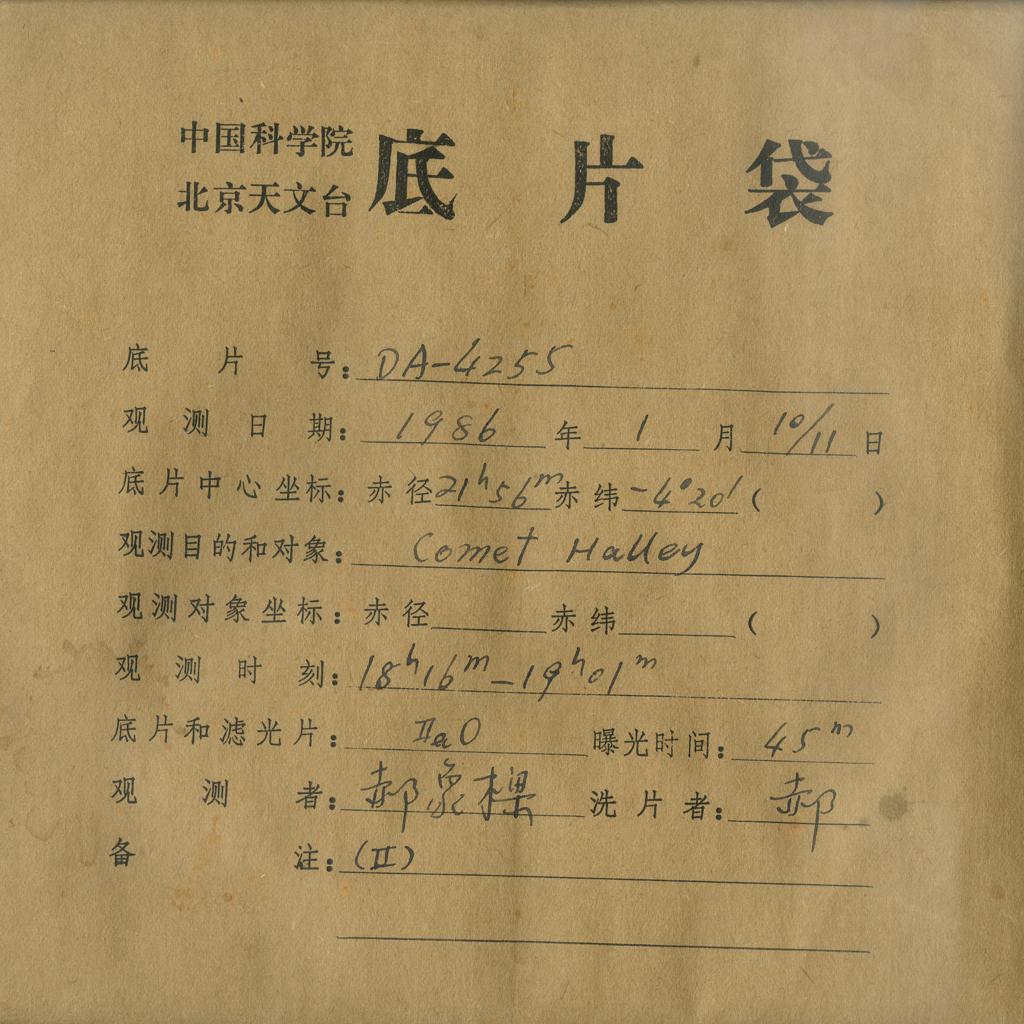 中国科学院
北京天文台
底片袋
底片号：DA-4255
观测日期：1986年1月10/11日
底片中心坐标：赤径21h56m赤纬-4°20′（ ）
观测目的和对象：Comet Halley
观测对象坐标：赤径 赤纬 （ ）
观测时刻：18h16m-19h01m
底片和滤光片：IIaO 曝光时间：45m
观测者：郝象樑 洗片者：郝
备注：（II）